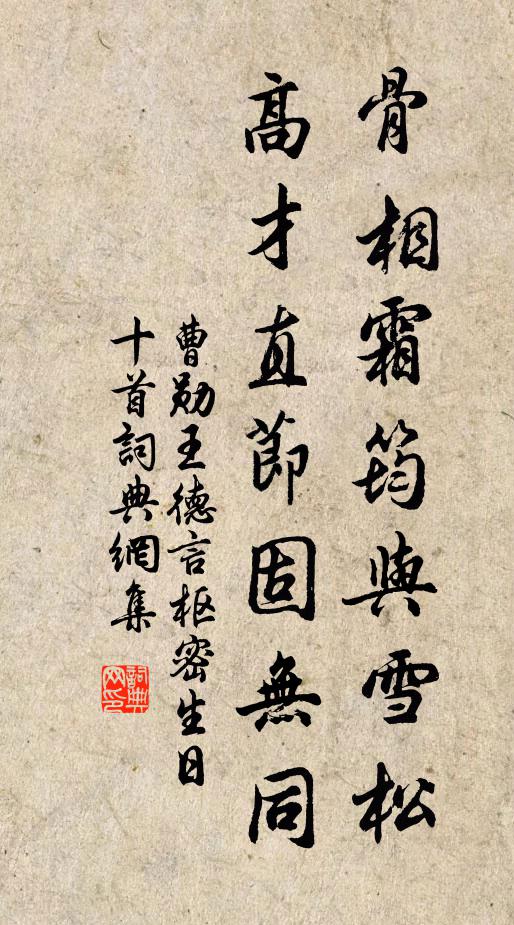 骨相霜筠與雪松
高才直節固無同
曹勛王德言枢密生日
十首詞典網集
詞典
网印